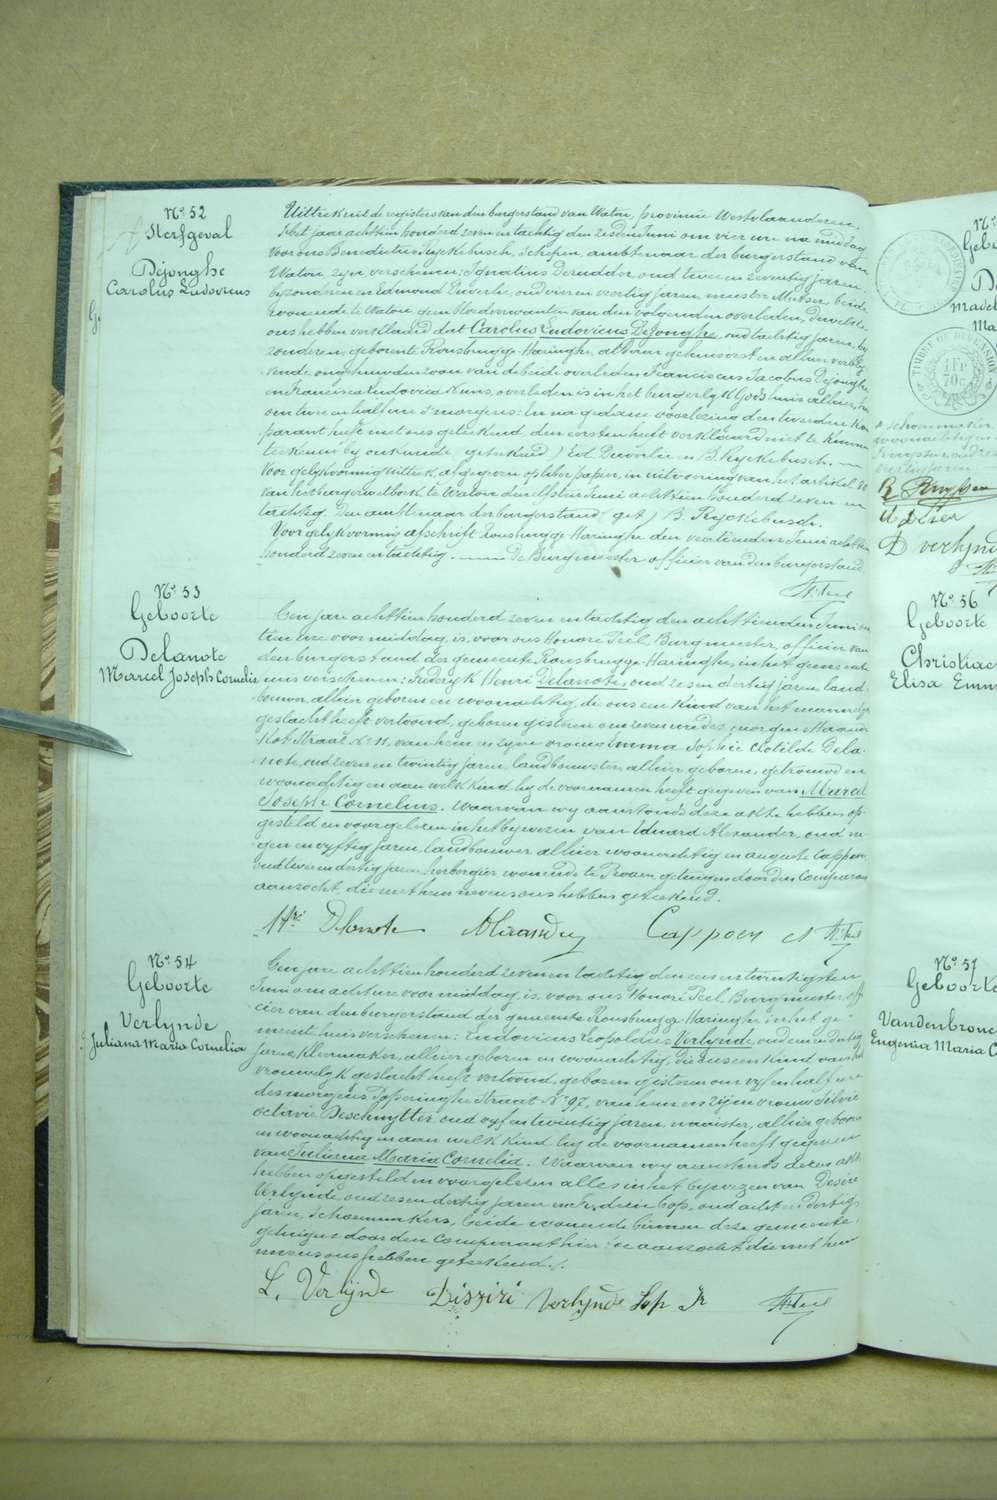 Nº 52
Sterfgeval
Dejonghe
Carolus Ludovicus
Uittreksel de registers van den burgerstand van Watou, provincie Westvlaanderen.
Het jaar achttien honderd zeven en tachtig den zesden Juni om vier ure na middag
voor ons Benedictus Ryckebusch, Schepen, ambtenaar der burgerstand van
Watou zyn verschenen: Ignatius Deruddor, oud twee en zeventig jaren,
byzonderen en Edmond Duverlie, oud vier en veertig jaren, meester Metser, beide
woonende te Watou, geen bloedverwanten van den volgenden overleden, Dewelke
ons hebben verklaard dat Carolus Ludovicus Dejonghe, oud tachtig jaren, by
zonderen, geboren te Rousbrugge Haringhe, aldaar gehuisvest en alhier verbly
vende, ongehuwden zoon van de beide overleden Franciscus Jacobus Dejonghe
en Francisca Ludovica Nuns, overleden is in het burgerlyk Godshuis alhier,
om twee en half ure 's morgens: En na gedane voorlezing den tweeden Com
parant heeft met ons geteekend, den eersten heeft verklaard niet te kunnen
teekenen by onkunde, geteekend) Ed. Duverlie en B. Ryckebusch.
Voor gelykvormig uittreksel, afgegeven op liber papier, in uitvoering van het artikel 80
van het burgerwetboek, te Watou den elfsten Juni achttien honderd zeven en
tachtig. Den ambtenaar der burgerstand (get) B. Ryckebusch.
Voor gelykvormig afschrift Rousbrugge Haringhe den veertienden Juni achttien
honderd zeven en tachtig. De Burgmeester officier van den burgerstand
H. Peel
Nº 53
Geboorte
Delanote
Marcel Joseph Cornelis
Een jare achttien honderd zeven en tachtig den achttienden Juni om
tien ure voor middag, is, voor ons Honore Peel Burgmeester, officier van
den burgerstand der gemeente Rousbrugge-Haringhe, in het gemeente
huis verschenen: Frederyk Henri Delanote, oud zes en dertig jaren, land-
bouwer, alhier geboren en woonachtig, die ons een kind van het mannelyk
geslacht heeft vertoond, geboren gisteren om zeven ure des morgens Haand
Kot Straat Nº 11, van hem en zyne vrouw Emma Sophie Clotilde Dela-
note, oud zeven en twintig jaren, landbouwster, alhier geboren, getrouwd en
woonachtig en aan welk kind hy de voornamen heeft gegeven van Marcel
Joseph Cornelius. Waarvan wy aanstonds deze akte hebben op-
gesteld en voorgelezen in het bywezen van Eduard Alexander, oud ne-
gen en vyftig jaren, landbouwer alhier woonachtig en auguste Cappoen,
oud twee en dertig jaren, herbergier wonende te Proven, getuigen door den Comparan
aanzocht, die met hem nevens ons hebben geteekend.
Hri Delanote Alexander Cappoen A H. Peel
Nº 54
Geboorte
Verlynde
Juliana Maria Cornelia
Een jare achttien honderd zeven en tachtig den een en twintigsten
Juni om acht ure voor middag, is, voor ons Honore Peel, Burgmeester, offi
cier van den burgerstand der gemeente Rousbrugge Haringhe in het ge-
meente huis verschenen: Ludovicus Leopoldus Verlynde, oud een en dertig
jaren, kleermaker, alhier geboren en woonachtig, die ons een kind van het
vrouwelyk geslacht heeft vertoond, geboren gisteren om vyf en half ure
des morgens Popperinghe Straat Nº 97, van hem en zyne vrouw Silvie
Octavie Deschuytter oud vyf en twintig jaren, naaister, alhier geboren
en woonachtig en aan welk kind hy de voornamen heeft gegeven
van Juliana Maria Cornelia. Waarvan wy aanstonds deze akte
hebben opgesteld en voorgelezen alles in het bywezen van Desire
Verlynde, oud zes en dertig jaren en Fredrien Sop, oud acht en dertig
jaren, Schoenmakers, beide wonende binnen deze gemeente,
getuigen door den Comparant hier toe aanzocht, die met hem
nevens ons hebben geteekend.
L. Verlijnde Disziri verlynde Sop Fr H. Peel
TIMBRE DE DIMENSION
1 FR
70 C
R Ruyssen
D verlynd
Nº 56
Geboorte
Christiae
Elisa Emm
Nº 57
Geboorte
Vandenbrone
Eugenia Maria C